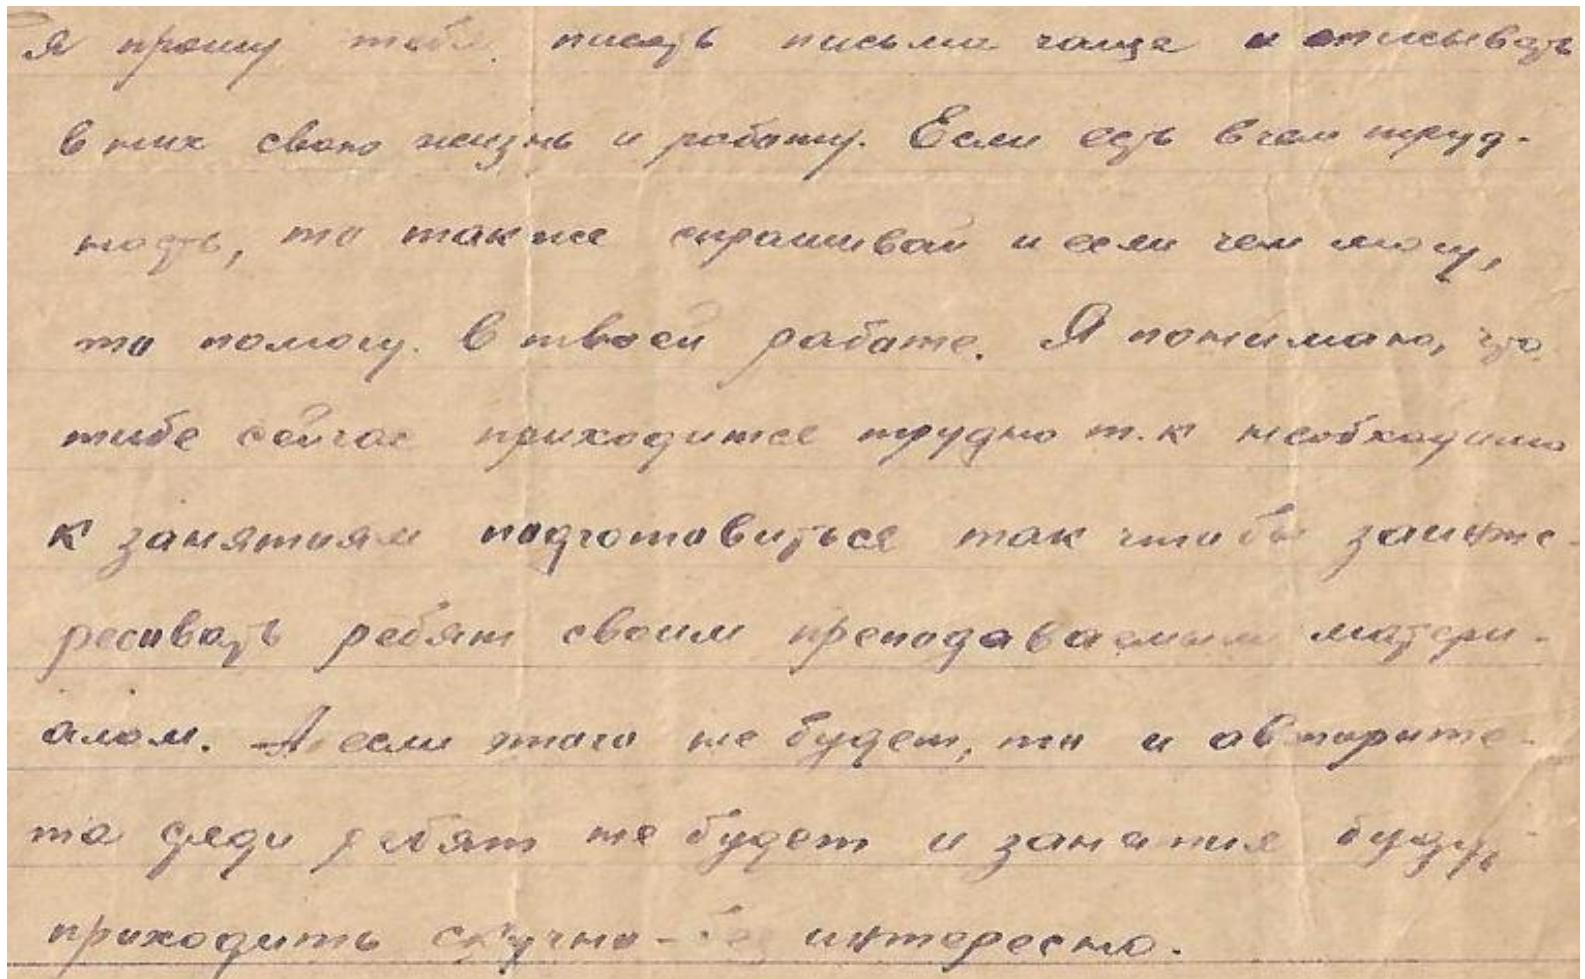 я прошу тебя писать письма чаще и описывать
в них свою жизнь и работу. Если есть в чем труд-
ность, то также спрашивай и если чем могу,
то помогу в твоей работе. Я понимаю, что
тибе сейчас приходится трудно т.к необходимо
к занятиям подготовиться так чтобы заинте-
ресовать ребят своим преподаваемым матери-
алом. А если этого не будет, то и авторите-
та среди ребят не будет и занятия будут
приходить скучно-без интересно.